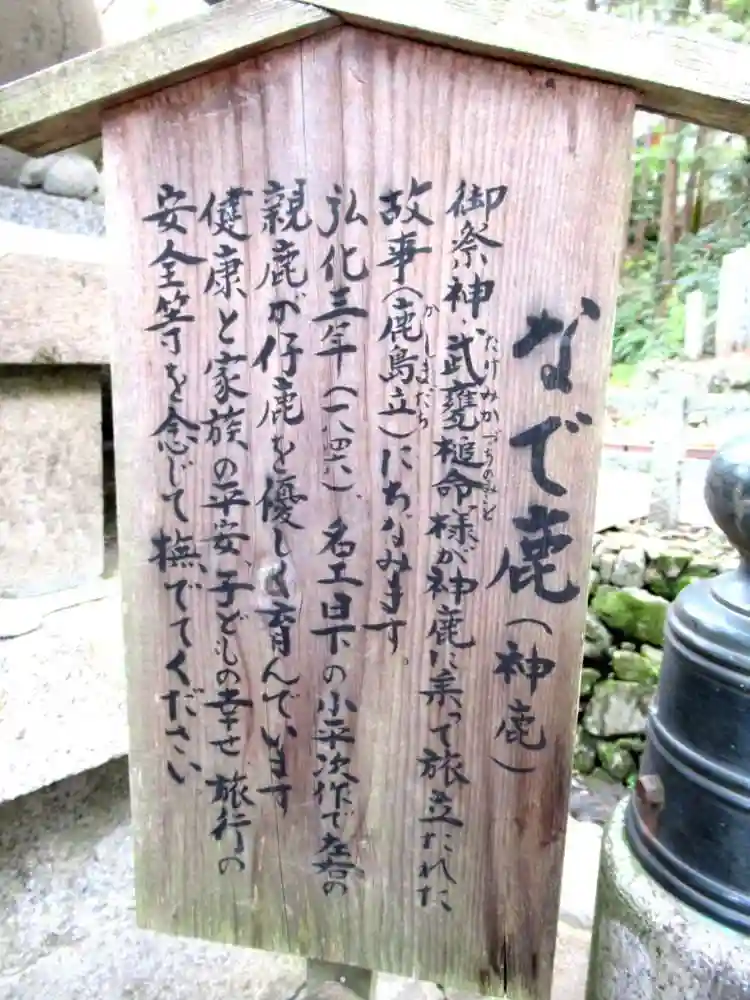 なで鹿（神鹿）
御祭神・武甕槌命様が神鹿に乗って旅立たれた
たけみかづちのみこと
故事（鹿島立）にちなみます。
かしまだち
弘化三年（一八四六）、名工日下の小平次作で左右の
親鹿が仔鹿を優しく育んでいます
健康と家族の平安、子どもの幸せ 旅行の
安全等を念じて撫でてください